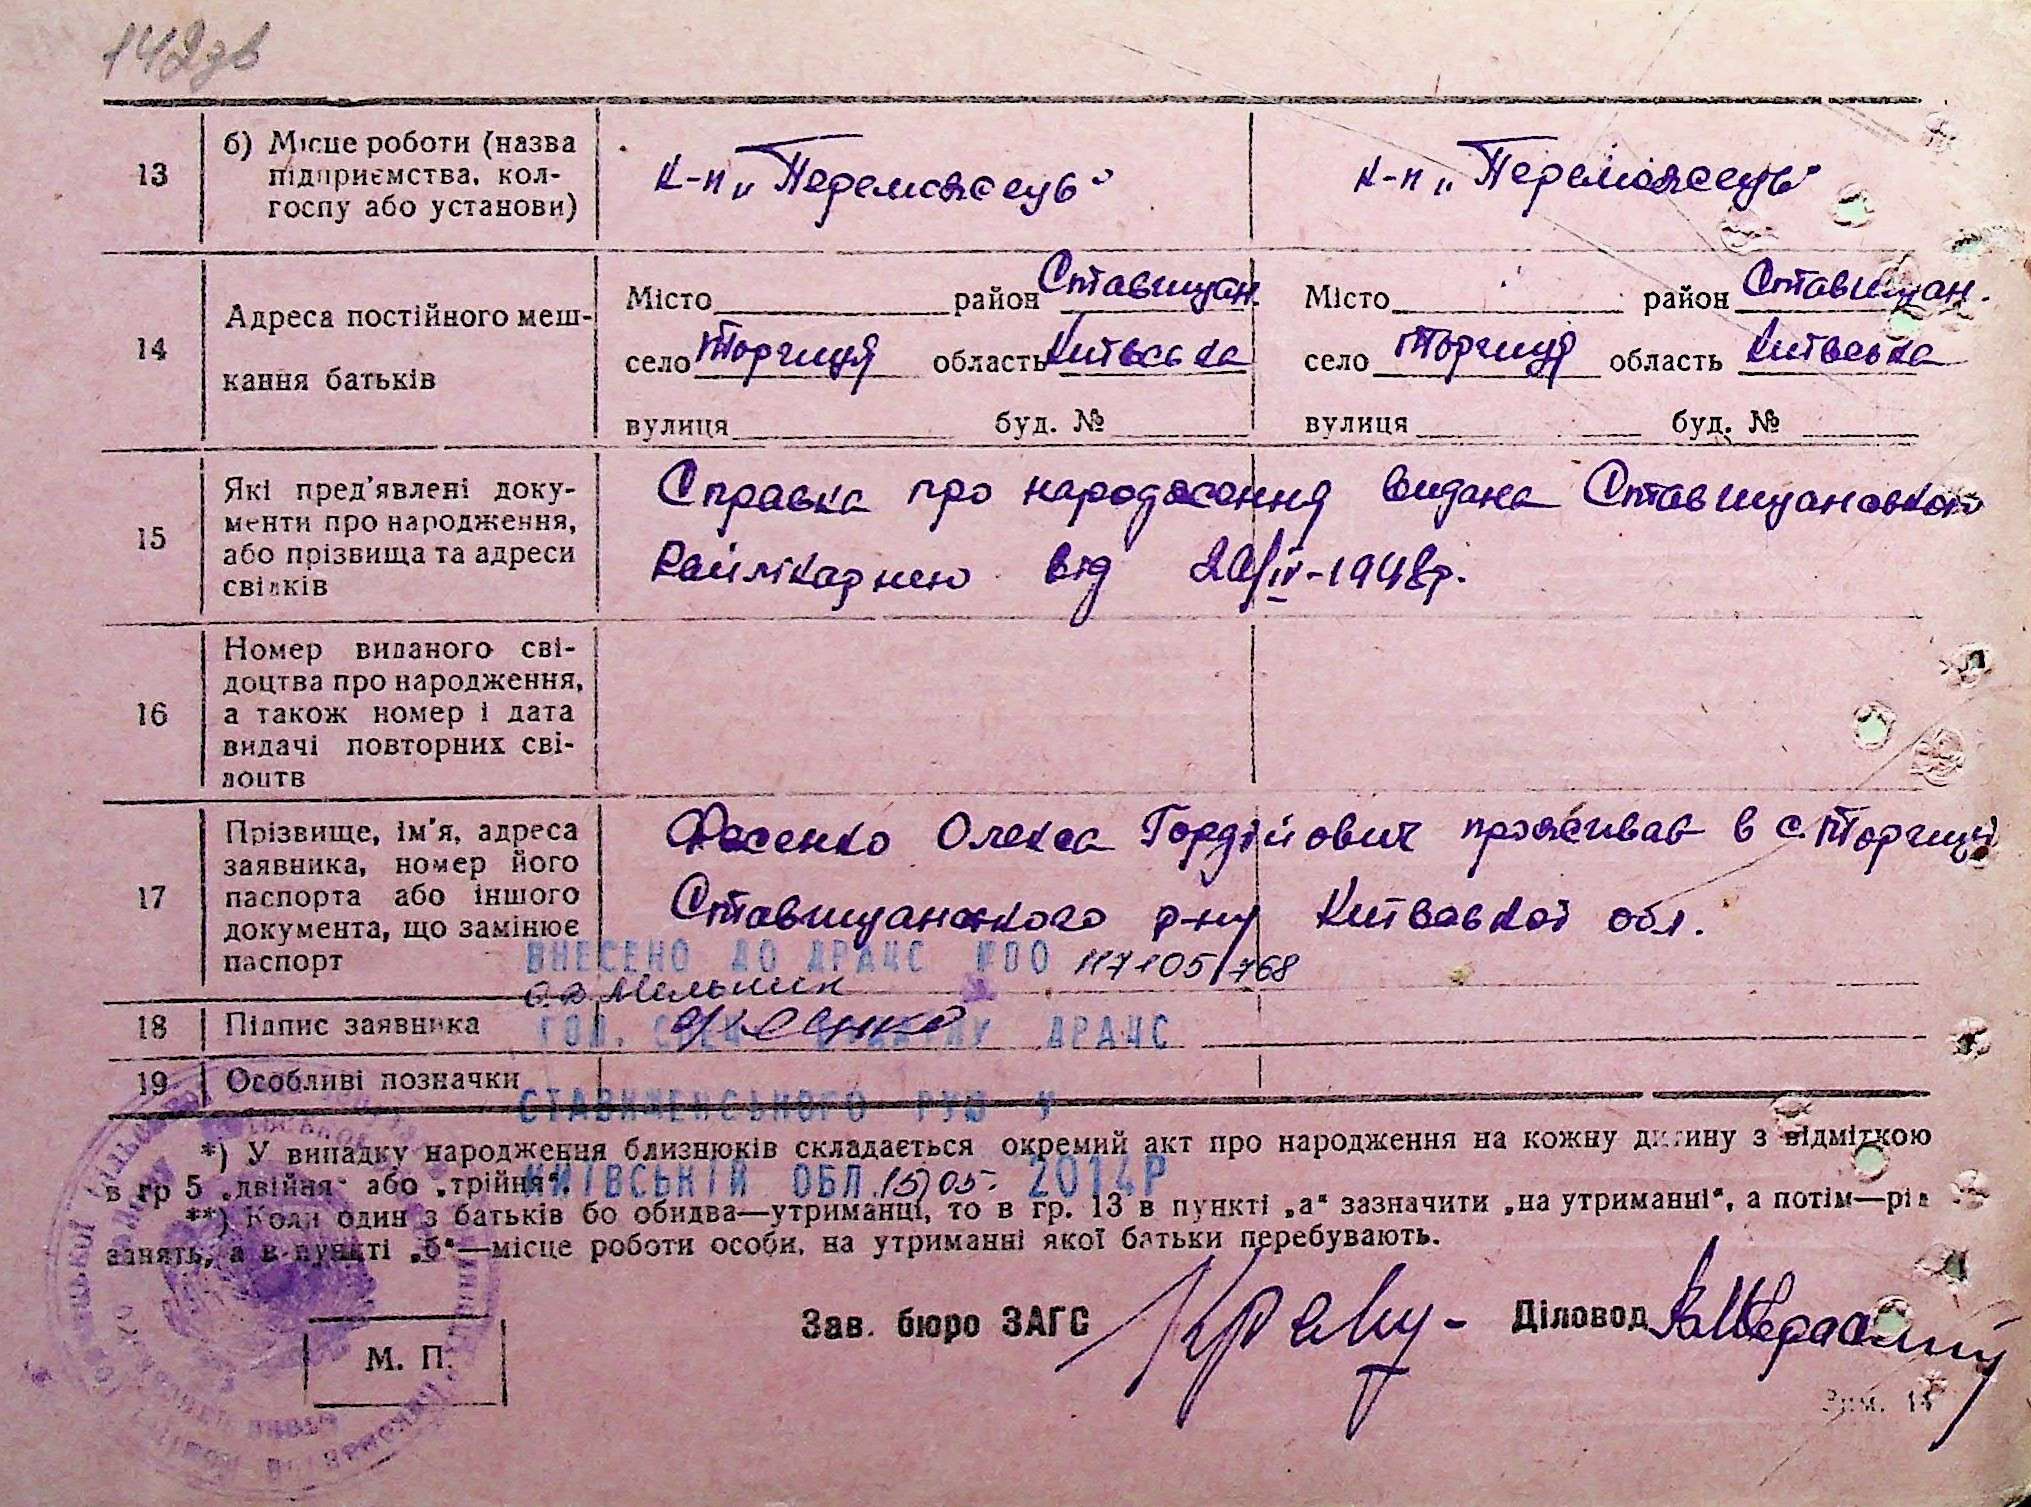 142зв
13 б) Місце роботи (назва підприємства, колгоспу або установи)
к-п „Переможець" к-п „Переможець"
14 Адреса постійного мешкання батьків
Місто район Ставищан. Місто район Ставищан.
село Торчиця область Київська село Торчиця область Київська
вулиця буд. № вулиця буд. №
15 Які пред'явлені документи про народження, або прізвища та адреси свідків
Справка про народження видана Ставищановкою
Райлікарнею від 20/IV-1948р.
16 Номер виданого свідоцтва про народження, а також номер і дата видачі повторних свідоцтв
17 Прізвище, ім'я, адреса заявника, номер його паспорта або іншого документа, що замінює паспорт
Фесенко Олекса Гордійович проживає в с. Торчиці
Ставищанского р-ну Київської обл.
ВНЕСЕНО ДО ДРАЦС №00 117105/768
Мельник
18 Підпис заявника
ГОЛ. СПЕЦ ВІДДІЛУ ДРАЦС
19 Особливі позначки
СТАВИЩЕНСЬКОГО РУЮ У
*) У випадку народження близнюків складається окремий акт про народження на кожну дитину з відміткою
в гр 5 „двійня" або „трійня".
КИЇВСЬКІЙ ОБЛ. 15/05. 2014Р
**) Коли один з батьків бо обидва—утриманці, то в гр. 13 в пункті „а" зазначити „на утриманні", а потім—рід
занять, а в пункті „б"—місце роботи особи, на утриманні якої батьки перебувають.
Зав. бюро ЗАГС Діловод
М. П.
Зам. 14